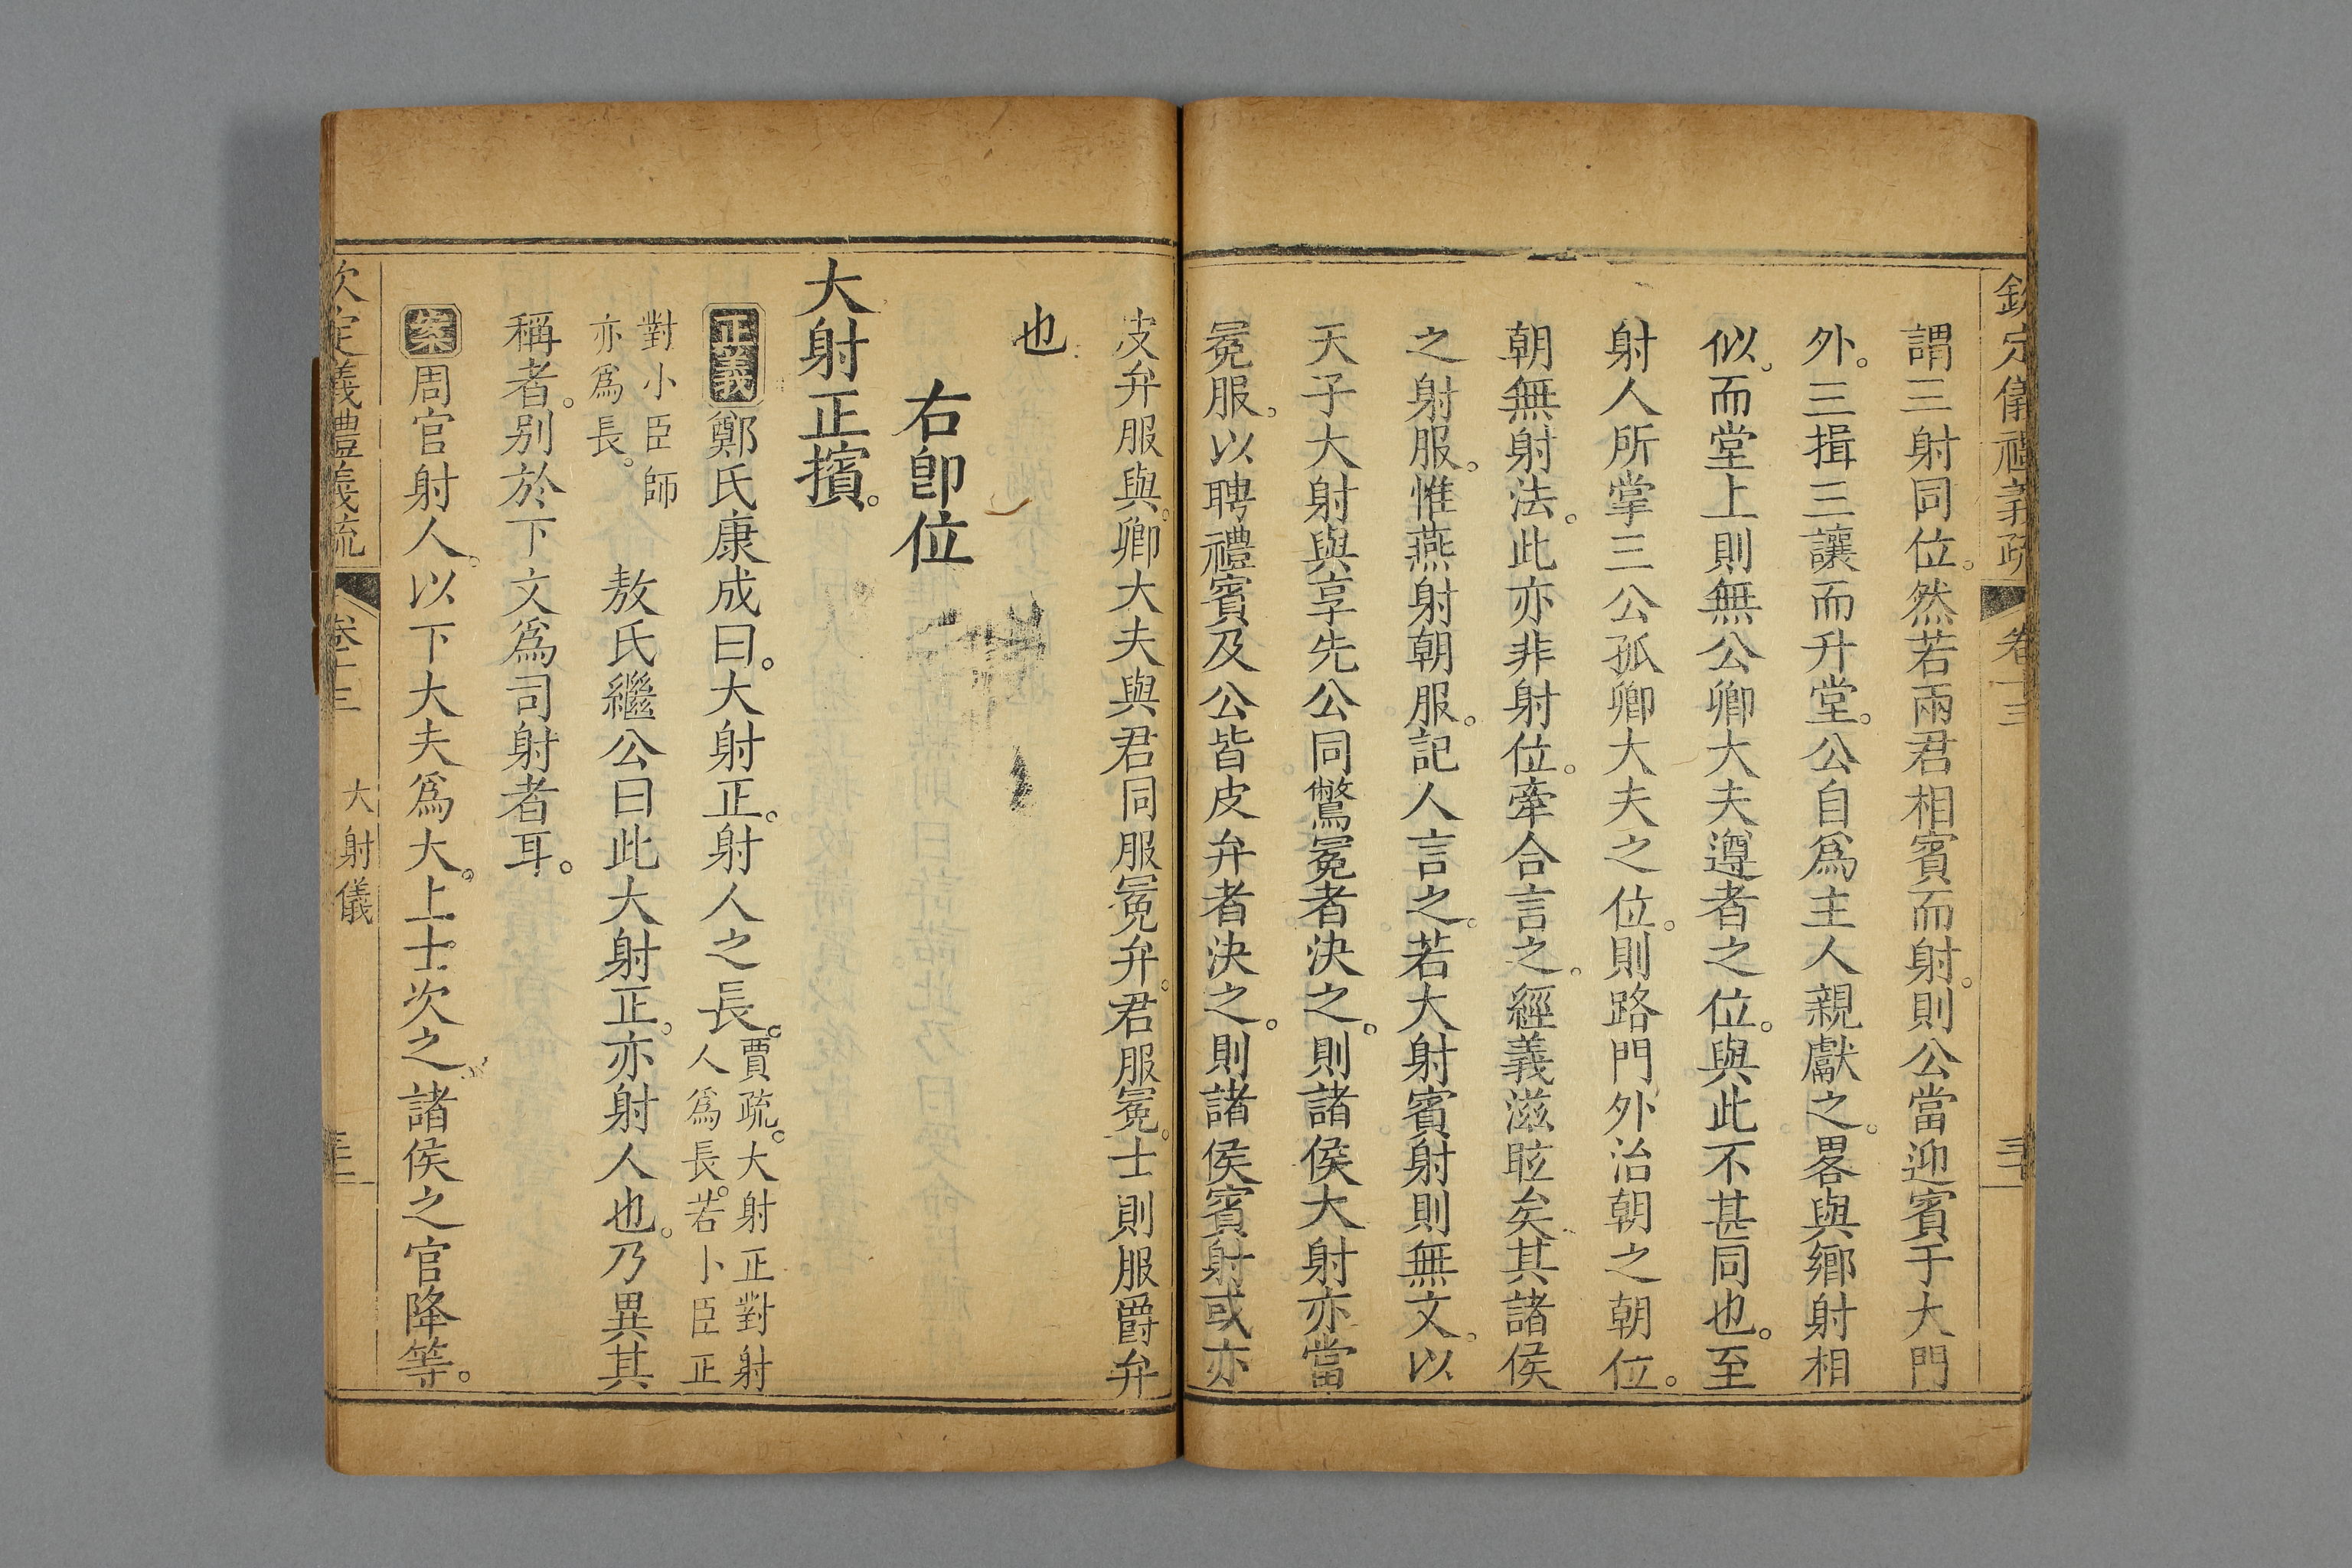 欽定儀禮義疏 卷十三 三十
謂三射同位。然若兩君相賓而射。則公當迎賓于大門
外。三揖三讓而升堂。公自爲主人親獻之。畧與鄉射相
似。而堂上則無公卿大夫遵者之位。與此不甚同也。至
射人所掌三公孤卿大夫之位。則路門外治朝之朝位。
朝無射法。此亦非射位。牽合言之。經義滋眩矣。其諸侯
之射服。惟燕射朝服。記人言之。若大射賓射則無文。以
天子大射與享先公同鷩冕者決之。則諸侯大射亦當
冕服。以聘禮賓及公皆皮弁者決之。則諸侯賓射或亦
皮弁服與。卿大夫與君同服冕弁。君服冕。士則服爵弁
也。
右卽位
大射正擯。
正義鄭氏康成曰。大射正。射人之長。賈疏。大射正對射
人爲長。若卜臣正
對小臣師
亦爲長。
敖氏繼公曰此大射正。亦射人也。乃異其
稱者。別於下文爲司射者耳。
案周官射人。以下大夫爲大。上士次之。諸侯之官降等。
欽定儀禮義疏 卷十三 大射儀